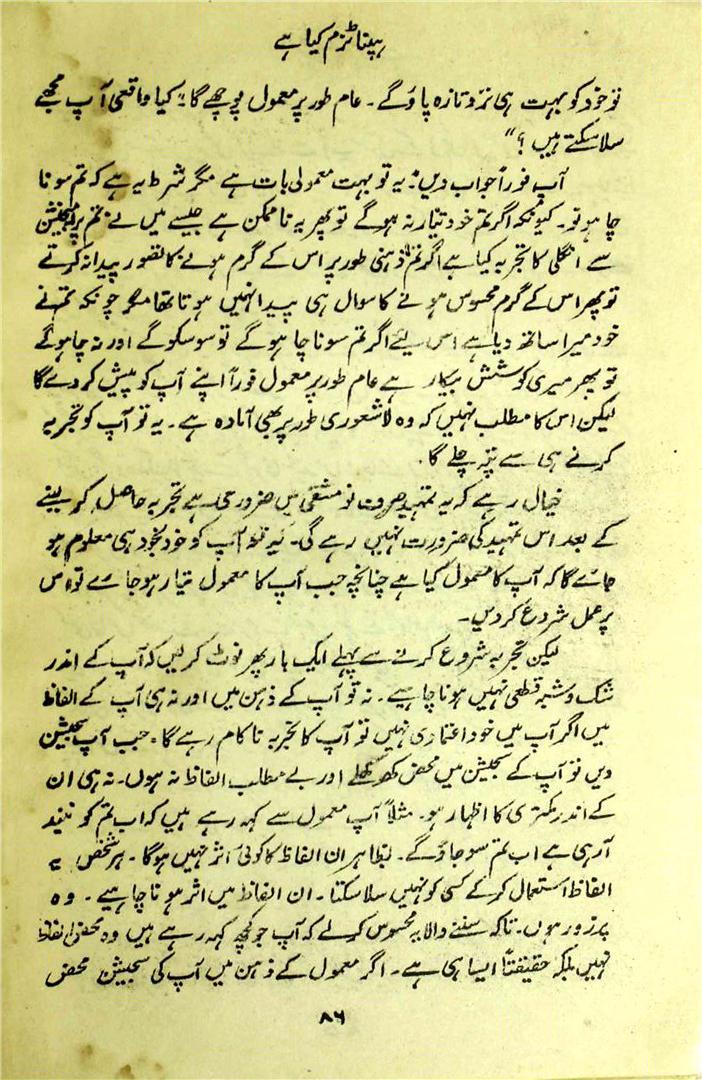 ہپناٹزم کیا ہے
تو خود کو بہت ہی تروتازہ پاؤگے۔ عام طور پر معمول پوچھے گا "کیا واقعی آپ مجھے
سلا سکتے ہیں؟"
آپ فوراً جواب دیں: یہ تو بہت معمولی بات ہے مگر شرط یہ ہے کہ تم سونا
چاہو تو۔ کیونکہ اگر تم خود تیار نہ ہوگے تو پھر یہ ناممکن ہے جیسے میں نے تم پر سجیشن
سے انگلی کا تجربہ کیا ہے اگر تم ذہنی طور پر اس کے گرم ہونے کا تصور پیدا نہ کرتے
تو پھر اس کے گرم محسوس ہونے کا سوال ہی پیدا نہیں ہوتا تھا مگر چونکہ تم نے
خود میرا ساتھ دیا ہے اس لیئے اگر تم سونا چاہوگے تو سو سکوگے اور نہ چاہوگے
تو پھر میری کوشش بیکار ہے عام طور پر معمول فوراً اپنے آپ کو پیش کردے گا
لیکن اس کا مطلب نہیں کہ وہ لاشعوری طور پر بھی آمادہ ہے۔ یہ تو آپ کو تجربہ
کرنے ہی سے پتہ چلے گا۔
خیال رہے کہ یہ تمہید صرف نو مشقی میں ضروری ہے تجربہ حاصل کرلینے
کے بعد اس تمہید کی ضرورت نہیں رہے گی۔ آپ کو خود بخود ہی معلوم ہو
جائے گا کہ آپ کا معمول کیا ہے چنانچہ جب آپ کا معمول تیار ہوجائے تو اس
پر عمل شروع کردیں۔
لیکن تجربہ شروع کرنے سے پہلے ایک بار پھر نوٹ کرلیں کہ آپ کے اندر
شک و شبہ قطعی نہیں ہونا چاہیے۔ نہ تو آپ کے ذہن میں اور نہ ہی آپ کے الفاظ
میں اگر آپ میں خود اعتمادی نہیں تو آپ کا تجربہ ناکام رہے گا۔ جب آپ سجیشن
دیں تو آپ کے سجیشن میں محض کھوکھلے اور بے مطلب الفاظ نہ ہوں۔ نہ ہی ان
کے اندر کمتری کا اظہار ہو۔ مثلاً آپ معمول سے کہہ رہے ہیں کہ اب تم کو نیند
آرہی ہے اب تم سو جاؤگے۔ بظاہر ان الفاظ کا کوئی اثر نہیں ہوگا۔ ہر شخص یہ
الفاظ استعمال کرکے کسی کو نہیں سلا سکتا۔ ان الفاظ میں اثر ہونا چاہیے۔ وہ
پرزور ہوں۔ تاکہ سننے والا یہ محسوس کرلے کہ آپ جو کچھ کہہ رہے ہیں وہ محض الفاظ
نہیں بلکہ حقیقتاً ایسا ہی ہے۔ اگر معمول کے ذہن میں آپ کی سجیشن محض
۸۶